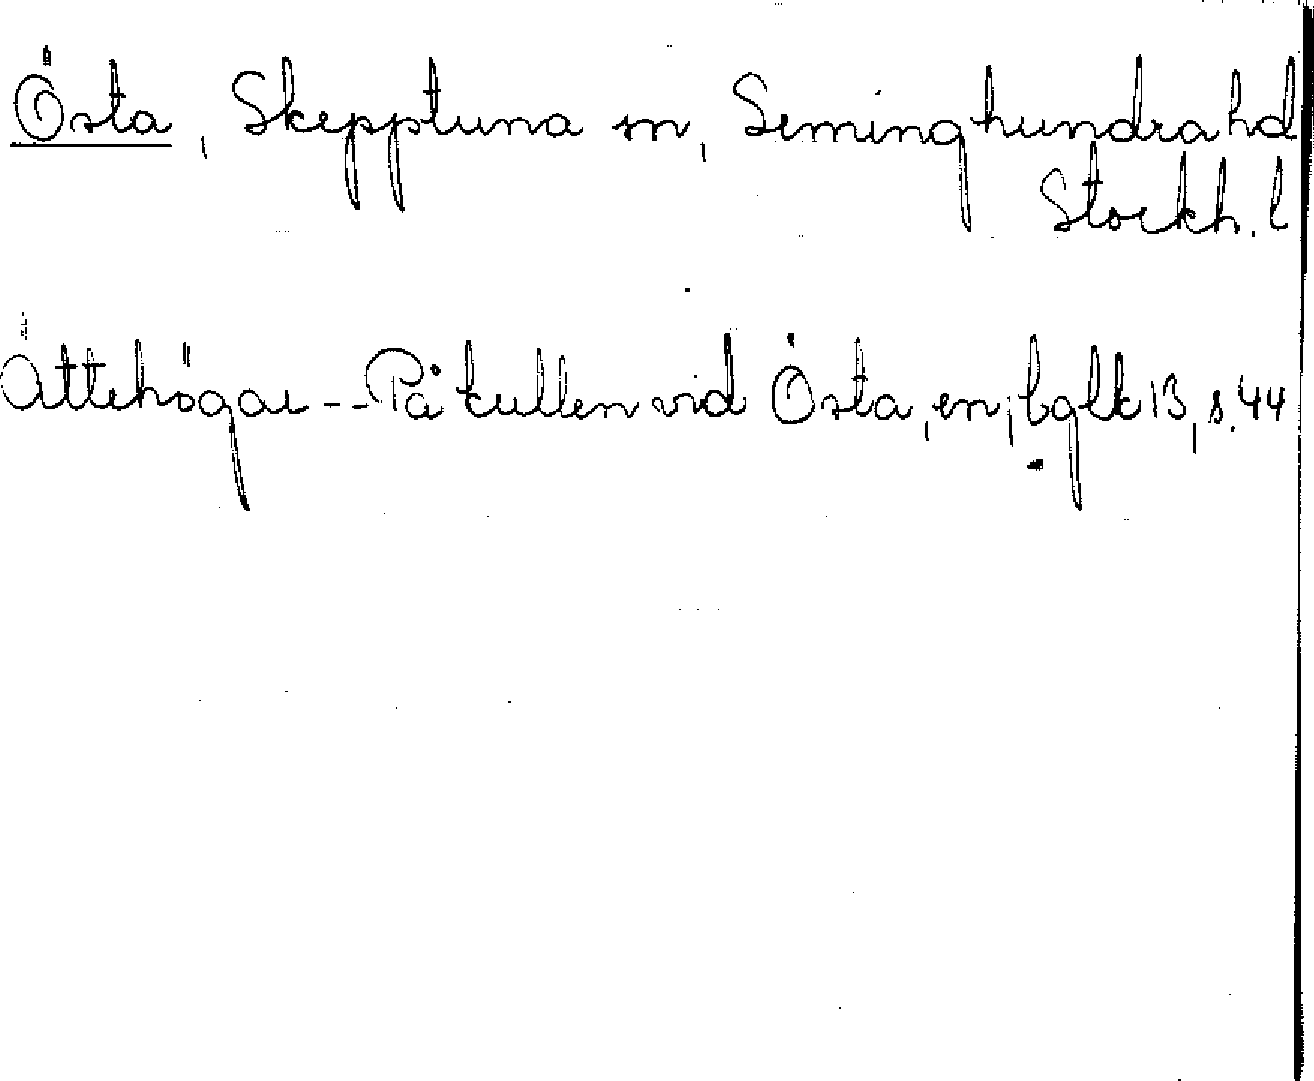 Östa, Skepptuna sn, Seminghundra hd
Stockh. l
Ättehögar -- På kullen vid Östa, en; bglk 13, s. 44